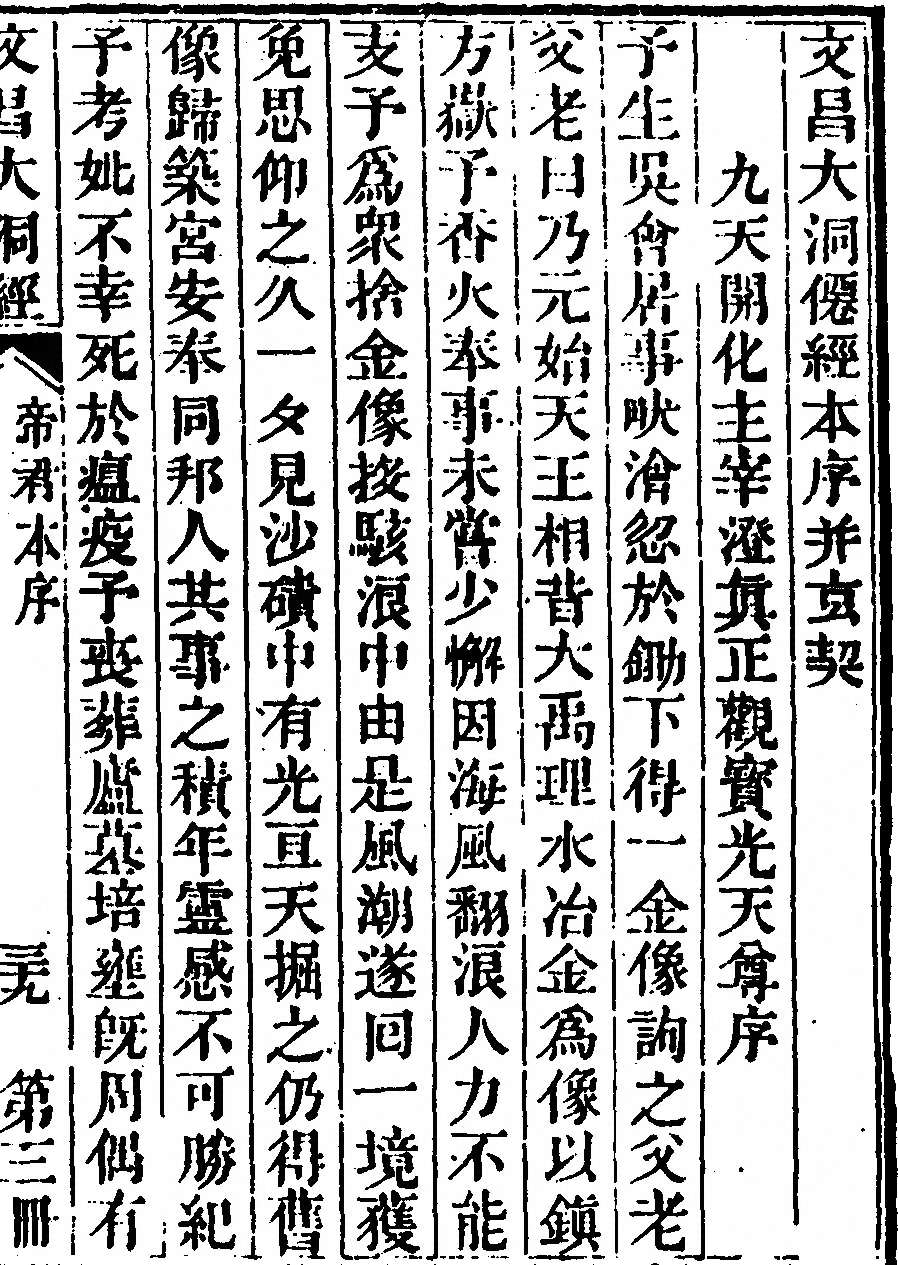 文昌大洞僊經本序并玄契
九天開化主宰澄真正觀寶光天尊序
予生吳會居事畎澮忽於鋤下得一金像詢之父老
父老曰乃元始天王相昔大禹理水冶金為像以鎮
方嶽予香火奉事未嘗少懈因海風翻浪人力不能
支予為眾捨金像投駭浪中由是風潮遂回一境獲
免思仰之久一夕見沙磧中有光亘天掘之仍得舊
像歸築宮安奉同邦人其事之積年靈感不可勝紀
予考妣不幸死於瘟疫予喪葬廬墓培壅既周偶有
文昌大洞經 帝君本序 三 第三冊